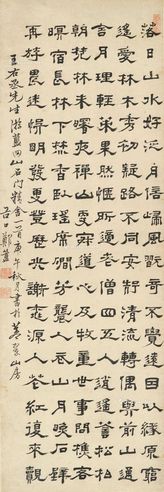 落日山水好泛舟信歸風翫奇不覺遠因以緣源窮
遙愛林木秀初疑路不同安知清流轉偶與前山通
舍舟理輕策果然愜所適老僧四五人逍遙蔭松柏
朝梵林未曙夜禪山更寂道心及牧童世事問樵客
暝宿長林下焚香臥瑤席澗芳襲人衣山月映石壁
再尋畏迷誤明發更登歷笑謝桃源人花紅復來覿
王右丞先生游藍田山石門精舍一首庚午秋月書於山房
谷口鄭簠